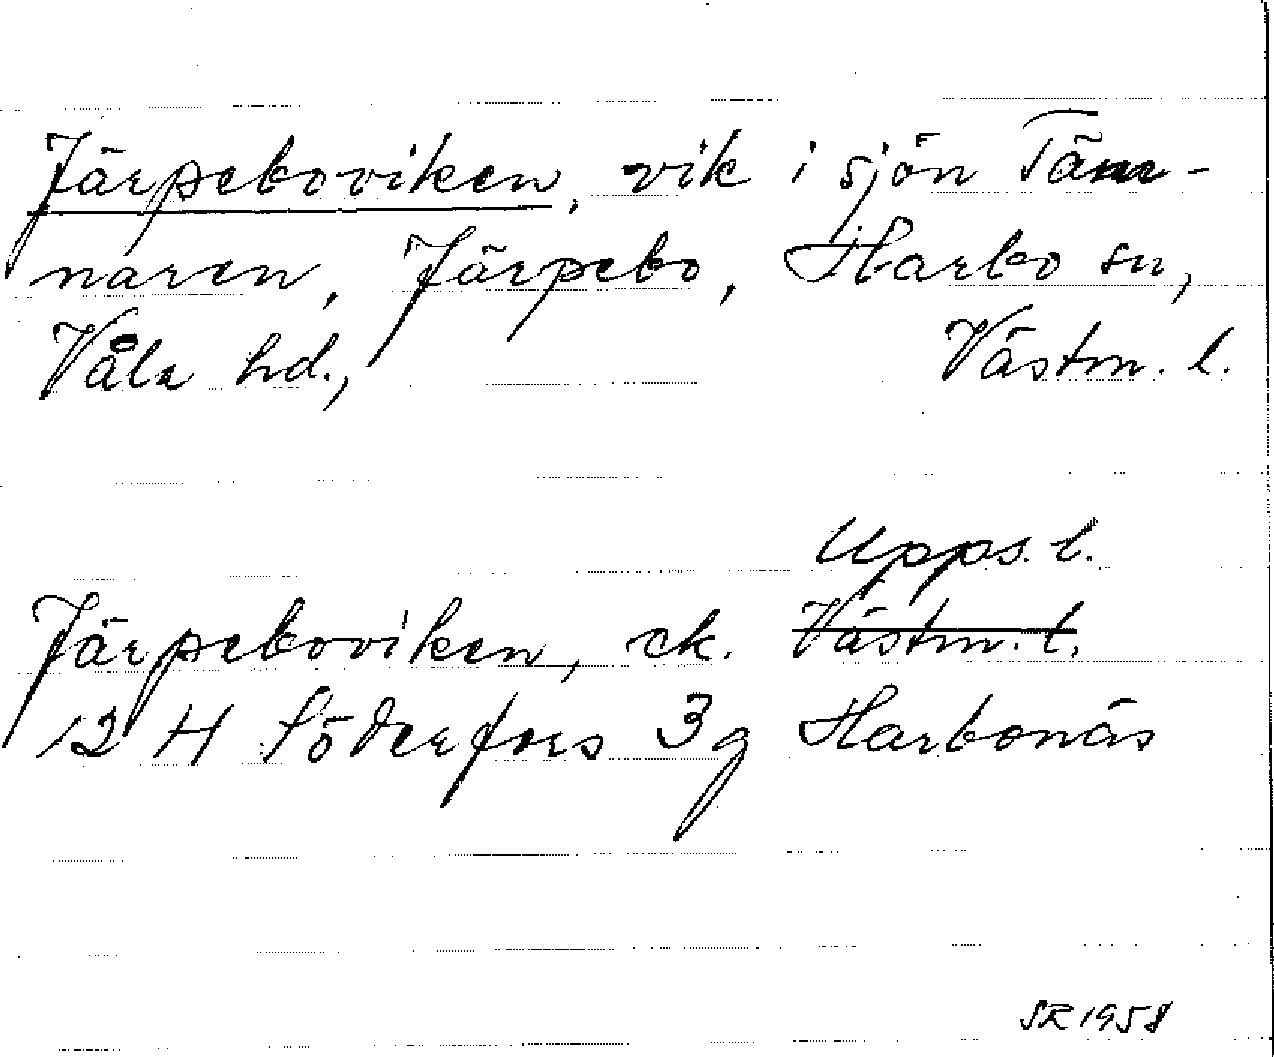 Järpeboviken, vik i sjön Täm-
naren, Järpebo, Harbo sn,
Våla hd., Västm. l.
Upps. l.
Järpeboviken, ek. Västm. l.
12 H Söderfors 3g Harbonäs
SR 1958